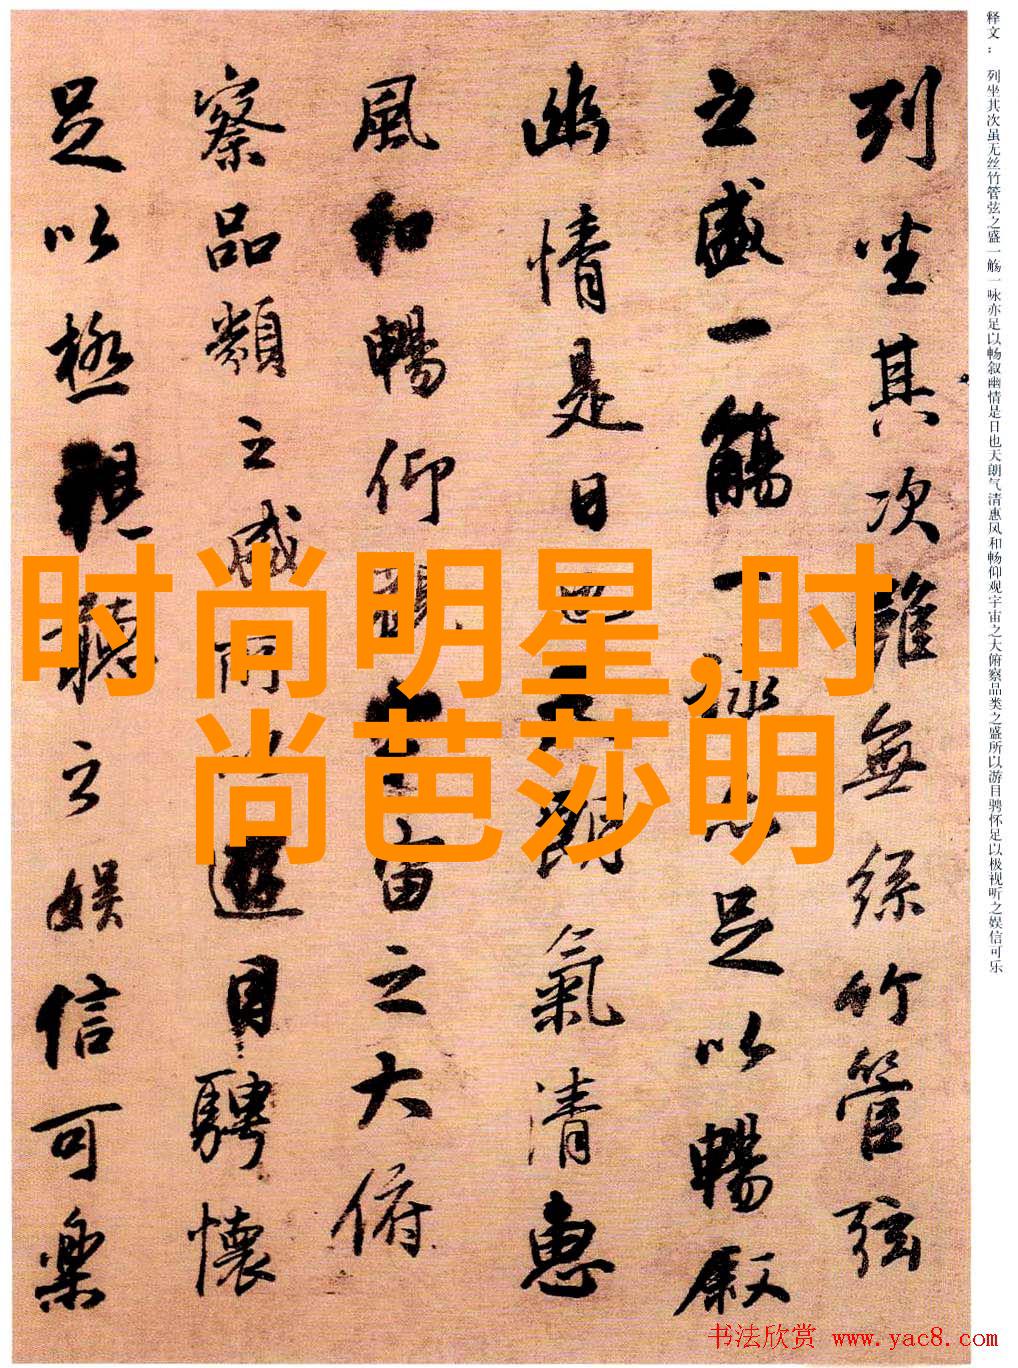 释文：列坐其次虽无丝竹管弦之盛一觞一咏亦足以畅叙幽情是日也天朗气清惠风和畅仰观宇宙之大俯察品类之盛所以游目骋怀足以极视听之娱信可乐
列坐其次雖無絲竹管弦
之盛一觴一詠亦足以暢叙
幽情是日也天朗氣清惠
風和暢仰觀宇宙之大俯
察品類之盛所以遊目騁懷
足以極視聽之娛信可樂
时尚明星,时
尚芭莎明
书法欣赏 www.yac8.com